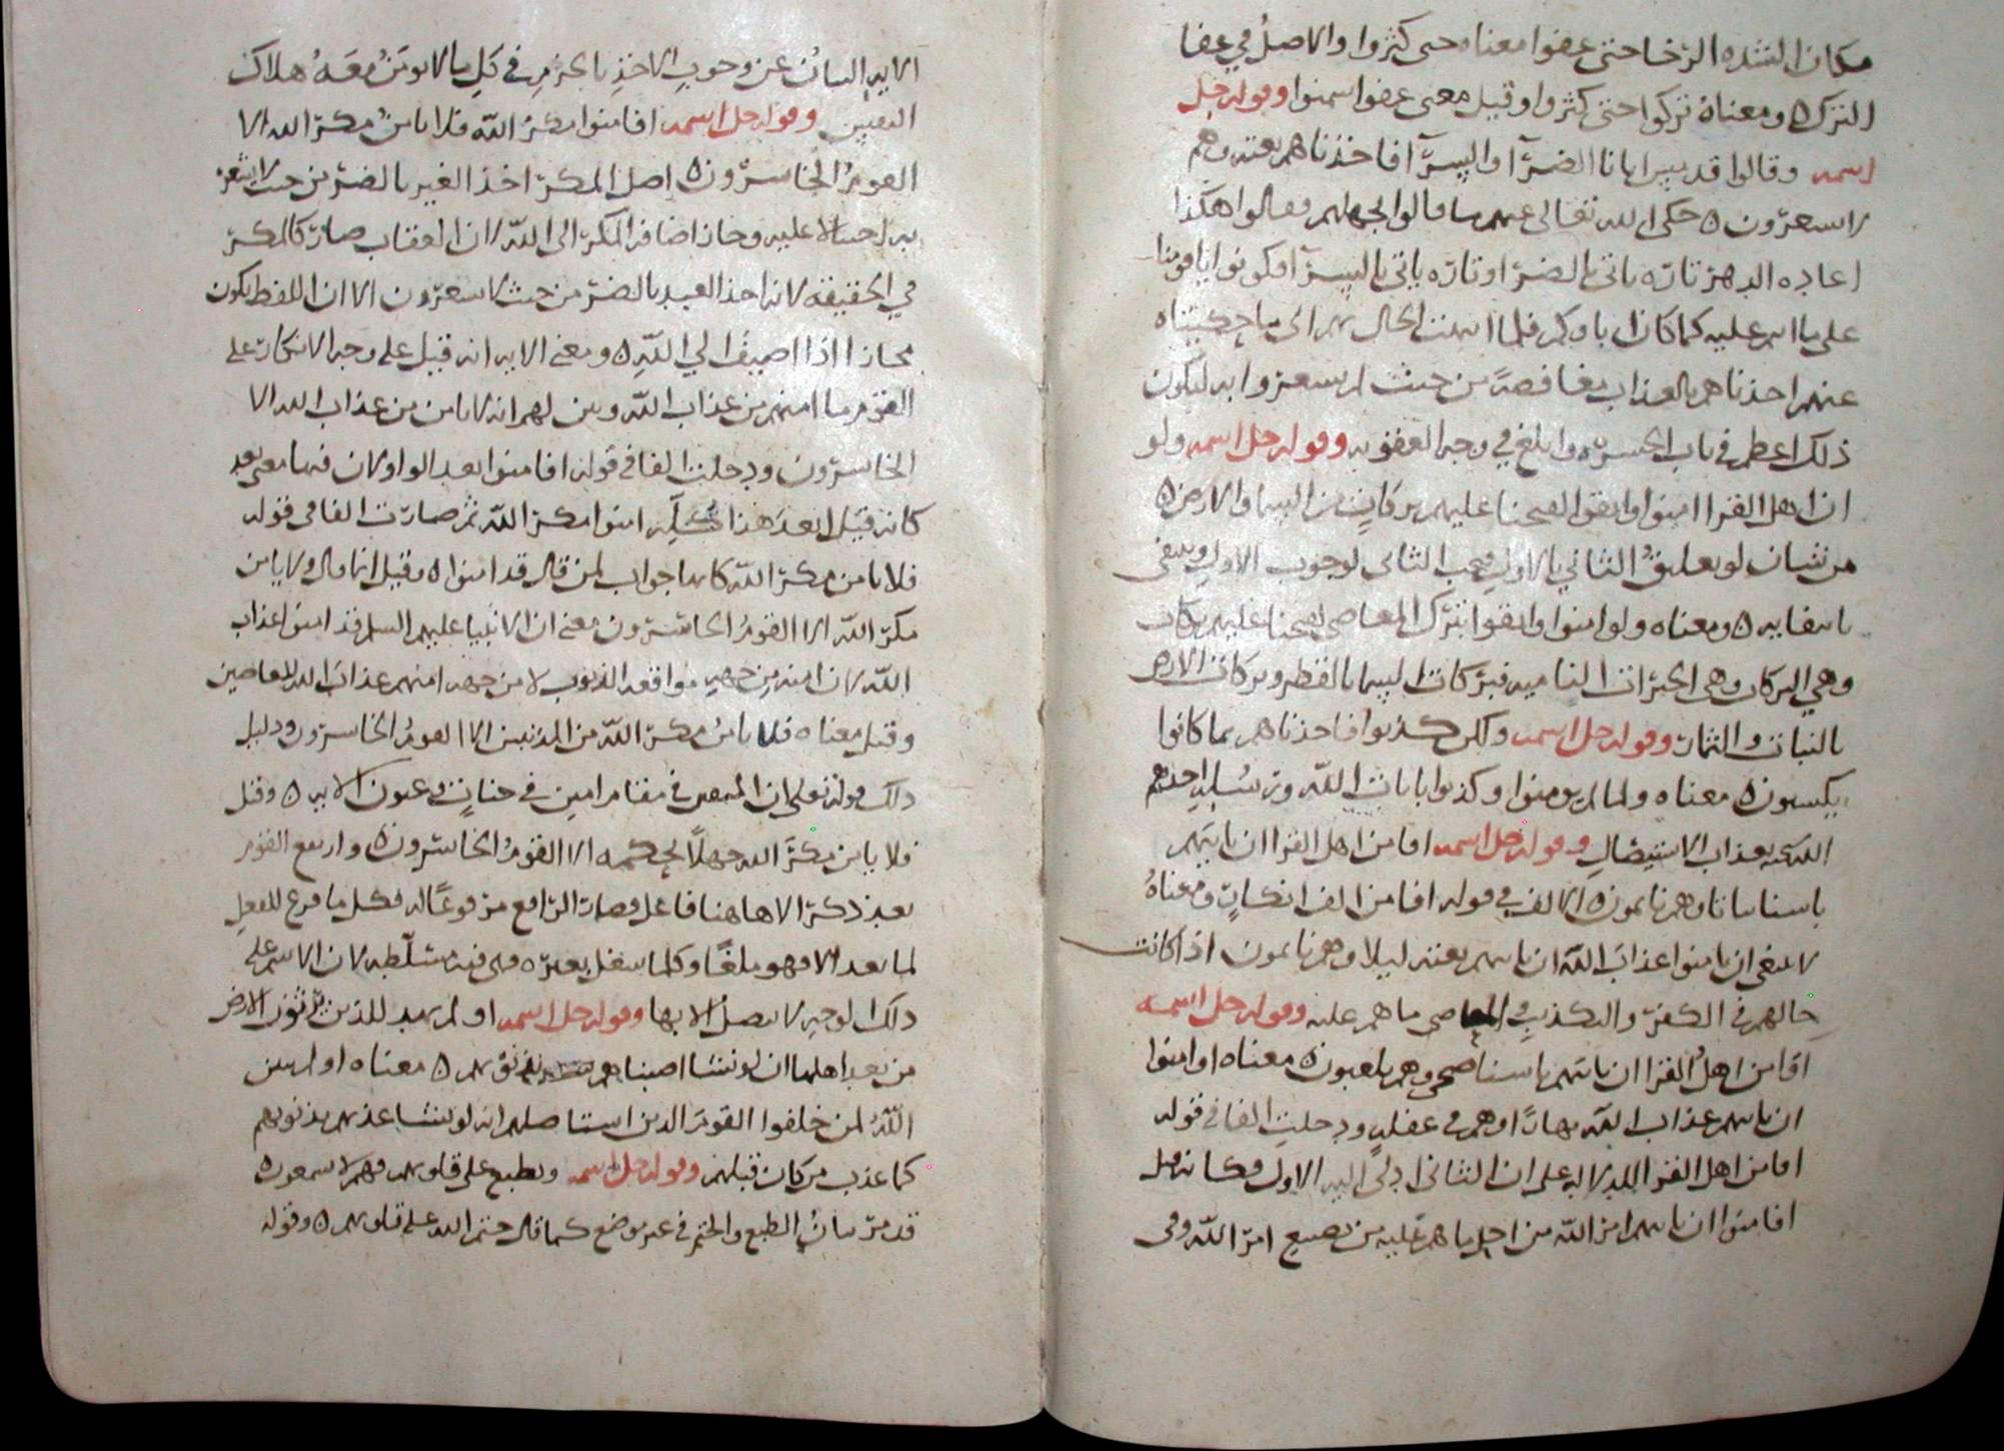 مكان الشده الرخا حتى عفوا معناه حتى كثروا والاصل في عفا
الترك ومعناه تركوا حتى كثروا وقيل معنى عفوا سمنوا وقوله جل
اسمه وقالوا قد مس ابانا الضرآ والسرآ فاخذناهم بغتة وهم
لا يسعرون حكى الله تعالى عنهم ما قالوا لجهلهم فقالوا هكذا
اعاده الدهر تاره ياتي بالضرا وتاره ياتي بالسرآ فكونوا يا قومنا
على ما انتم عليه كما كان اباوكم فلما انتهت الحال بهم الى ما حكيناه
عنهم اخذناهم بالعذاب مغافصة من حيث لم يسعروا به ليكون
ذلك اعظم في باب الحسره وابلغ في وجه العقوبه وقوله جل اسمه ولو
ان اهل القرا امنوا واتقوا لفتحنا عليهم بركات من السما والارض
من شان لو تعليق الثاني بالاول فيجب الثاني لوجوب الاول وينتفي
بانتفايه ومعناه ولو امنوا واتقوا بترك المعاصي لفتحنا عليهم بركات
وهي البركات وهي الخيرات الناميه فبركات السما بالقطر وبركات الارض
بالنبات والثمار وقوله جل اسمه ولكن كذبوا فاخذناهم بما كانوا
يكسبون معناه ولما لم يومنوا وكذبوا بايات الله ورسله اخذهم
الله بعذاب الاستيصال وقوله جل اسمه افامن اهل القرا ان ياتيهم
باسنا بياتا وهم نايمون الالف في قوله افامن الف انكار ومعناه
لا ينبغي ان يامنوا عذاب الله ان ياتيهم بغتة ليلا وهم نايمون اذا كانت
حالهم في الكفر والتكذيب والمعاصي ما هم عليه وقوله جل اسمه
اوامن اهل القرا ان ياتيهم باسنا ضحى وهم يلعبون معناه اوامنوا
ان ياتيهم عذاب الله نهارا وهم في غفله ودخلت الفا في قوله
افامن اهل القرا للدلاله على ان الثاني ادى اليه الاول فكانه قيل
افامنوا ان ياتيهم امر الله من اجل ما هم عليه من تضييع امر الله وفي
الايه البيان عن وجوب الاخذ بالحزم في كل ما لا يومن معه هلاك
وقوله جل اسمه افامنوا مكر الله فلا يامن مكر الله الا
القوم الخاسرون اصل المكر اخذ الغير بالضر من حيث لا يشعر
به احتيالا عليه وجاز اضافة المكر الى الله لان العقاب صار كالمكر
في الحقيقة لانه اخذ العبد بالضر من حيث لا يسعرون الا ان اللفظ يكون
مجازا اذا اضيف الي الله ومعنى الايه انه قيل على وجه الانكار على
القوم ما امنهم من عذاب الله وبين لهم انه لا يامن من عذاب الله الا
الخاسرون ودخلت الفا في قوله افامنوا بعد الواو لان فيها معنى بعد
كانه قيل ابعد هذا كله امنوا مكر الله ثم صارت الفا في قوله
فلا يامن مكر الله كانها جواب لمن قال قد امنوا وقيل انما قال ولا يامن
مكر الله الا القوم الخاسرون معنى ان الانبيا عليهم السلم قد امنوا عذاب
الله لان امنهم من جهة مواقعه الذنوب لا من جهة امنهم عذاب الله للعاصين
وقيل معناه فلا يامن مكر الله من المذنبين الا القوم الخاسرون ودليل
ذلك قوله تعالى ان المتقين في مقام امين في جنات وعيون الايه وقيل
فلا يامن مكر الله جهلا بحكمه الا القوم الخاسرون وارتفع القوم
بعد ذكر الا هاهنا فاعل فصار الرافع مرفوعا له فكل ما فرغ للفعل
لما بعد الا فهو ملغا وكلما شغل بغيره فهي فيه مسلطه لان الاسم على
ذلك الوجه لا يتصل الا بها وقوله جل اسمه اولم يهد للذين يرثون الارض
من بعد اهلها ان لو نشا اصبناهم بذنوبهم معناه اولم يبين
الله لمن خلفوا القوم الذين استاصلهم انه لو يشا عذبهم بذنوبهم
كما عذب من كان قبلهم وقوله جل اسمه ونطبع على قلوبهم فهم لا يسمعون
قد مر بيان الطبع والختم في غير موضع كما قال ختم الله على قلوبهم وقوله